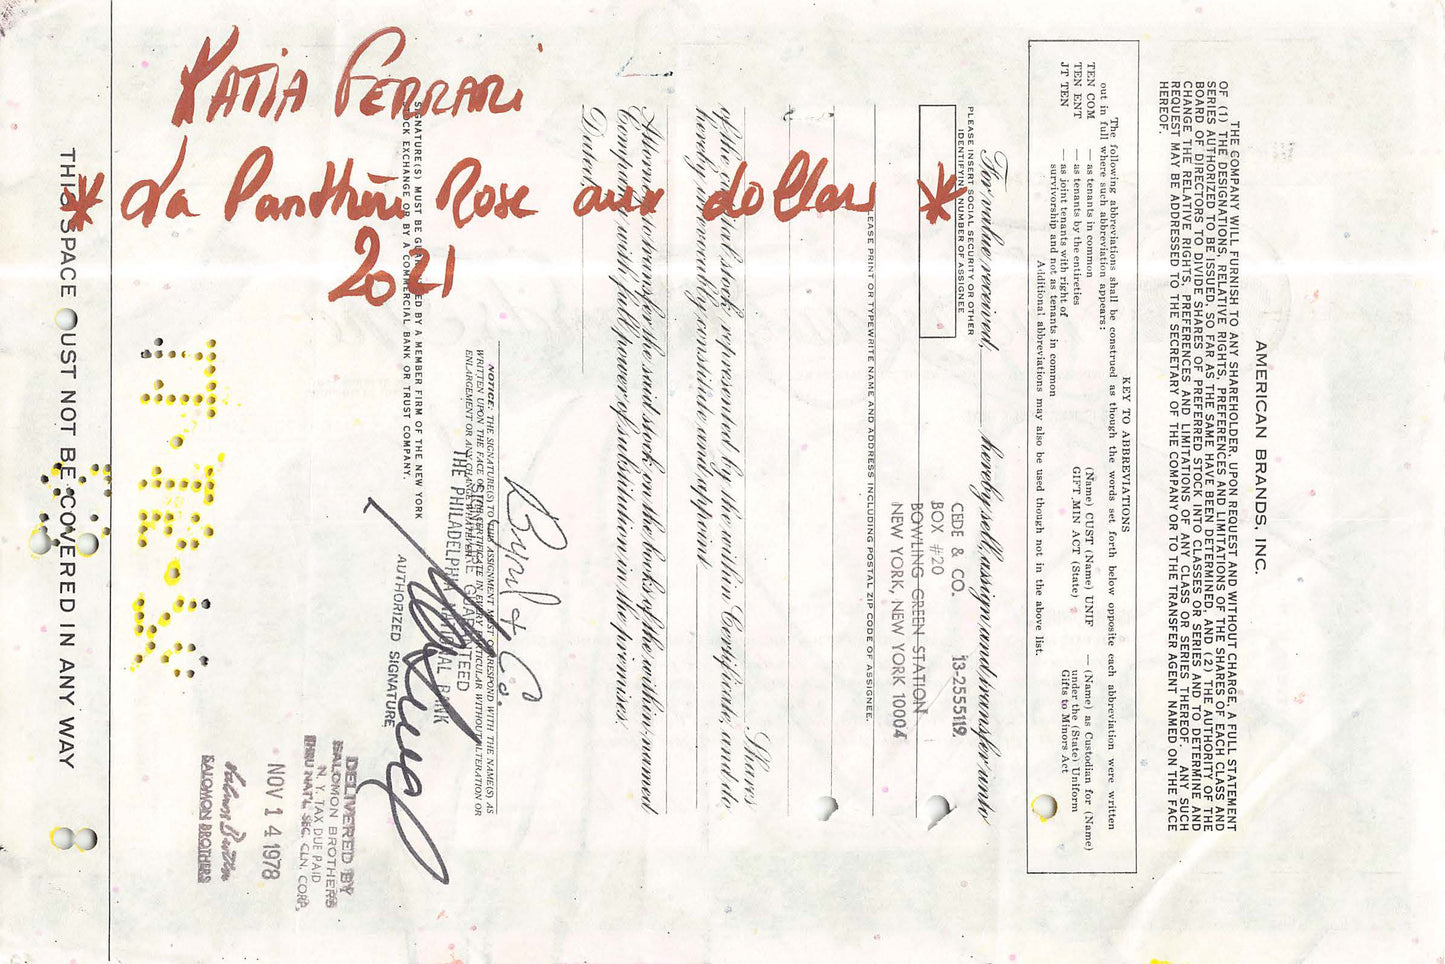 KATIA FERRARI
* La Panthère Rose aux dollars *
2021
AMERICAN BRANDS, INC.
THE COMPANY WILL FURNISH TO ANY SHAREHOLDER, UPON REQUEST AND WITHOUT CHARGE, A FULL STATEMENT
OF (1) THE DESIGNATIONS, RELATIVE RIGHTS, PREFERENCES AND LIMITATIONS OF THE SHARES OF EACH CLASS AND
SERIES AUTHORIZED TO BE ISSUED, SO FAR AS THE SAME HAVE BEEN DETERMINED, AND (2) THE AUTHORITY OF THE
BOARD OF DIRECTORS TO DIVIDE SHARES OF PREFERRED STOCK INTO CLASSES OR SERIES AND TO DETERMINE AND
CHANGE THE RELATIVE RIGHTS, PREFERENCES AND LIMITATIONS OF ANY CLASS OR SERIES THEREOF. ANY SUCH
REQUEST MAY BE ADDRESSED TO THE SECRETARY OF THE COMPANY OR TO THE TRANSFER AGENT NAMED ON THE FACE
HEREOF.
KEY TO ABBREVIATIONS
The following abbreviations shall be construed as though the words set forth below opposite each abbreviation were written
out in full where such abbreviation appears:
TEN COM — as tenants in common (Name) CUST (Name) UNIF — (Name) as Custodian for (Name)
TEN ENT — as tenants by the entireties GIFT MIN ACT (State) under the (State) Uniform
JT TEN — as joint tenants with right of Gifts to Minors Act
survivorship and not as tenants in common
Additional abbreviations may also be used though not in the above list.
For value received, hereby sell, assign and transfer unto
PLEASE INSERT SOCIAL SECURITY OR OTHER
IDENTIFYING NUMBER OF ASSIGNEE
CEDE & CO. 13-2555119
BOX #20
BOWLING GREEN STATION
NEW YORK, NEW YORK 10004
PLEASE PRINT OR TYPEWRITE NAME AND ADDRESS INCLUDING POSTAL ZIP CODE OF ASSIGNEE.
Shares
of the capital stock represented by the within Certificate, and do
hereby irrevocably constitute and appoint
Attorney to transfer the said stock on the books of the within-named
Company with full power of substitution in the premises.
Dated,
NOTICE: THE SIGNATURE(S) TO THIS ASSIGNMENT MUST CORRESPOND WITH THE NAME(S) AS
WRITTEN UPON THE FACE OF THE CERTIFICATE IN EVERY PARTICULAR WITHOUT ALTERATION OR
ENLARGEMENT OR ANY CHANGE WHATEVER.
SIGNATURE GUARANTEED
THE PHILADELPHIA NATIONAL BANK
AUTHORIZED SIGNATURE
SIGNATURE(S) MUST BE GUARANTEED BY A MEMBER FIRM OF THE NEW YORK
STOCK EXCHANGE OR BY A COMMERCIAL BANK OR TRUST COMPANY.
DELIVERED BY
SALOMON BROTHERS
N. Y. TAX DUE PAID
THRU NAT'L SEC. CLN. CORP.
NOV 14 1978
SALOMON BROTHERS
THIS SPACE MUST NOT BE COVERED IN ANY WAY